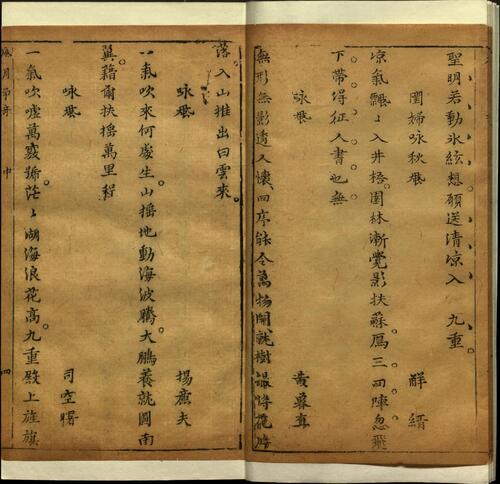 聖明若動氷絃想願送清凉入九重
閨婦咏秋風 解縉
凉氣飄〻入井梧園林漸覺影扶蘇鴈三四陣忽飛
下帶得征人書也無
咏風 黄暮真
無形無影透人懷四序能令萬物開就樹撮將花
落入山推出白雲來
咏風 揚庶夫
一氣吹來何處生山摇地動海波騰大鵬養就圖南
翼藉爾扶摇萬里程
咏風 司空曙
一氣吹嘘萬竅號茫〻湖海浪花高九重殿上旌旗
風月 中 四